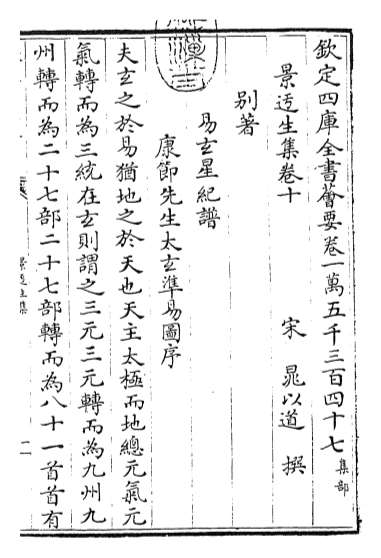 欽定四庫全書薈要卷一萬五千三百四十七 集部
景迃生集卷十
宋 晁以道 撰
別著
易玄星紀譜
康節先生太玄準易圖序
夫玄之於易猶地之於天也天主太極而地總元氣元
氣轉而為三統在玄則謂之三元三元轉而為九州九
州轉而為二十七部二十七部轉而為八十一首首有